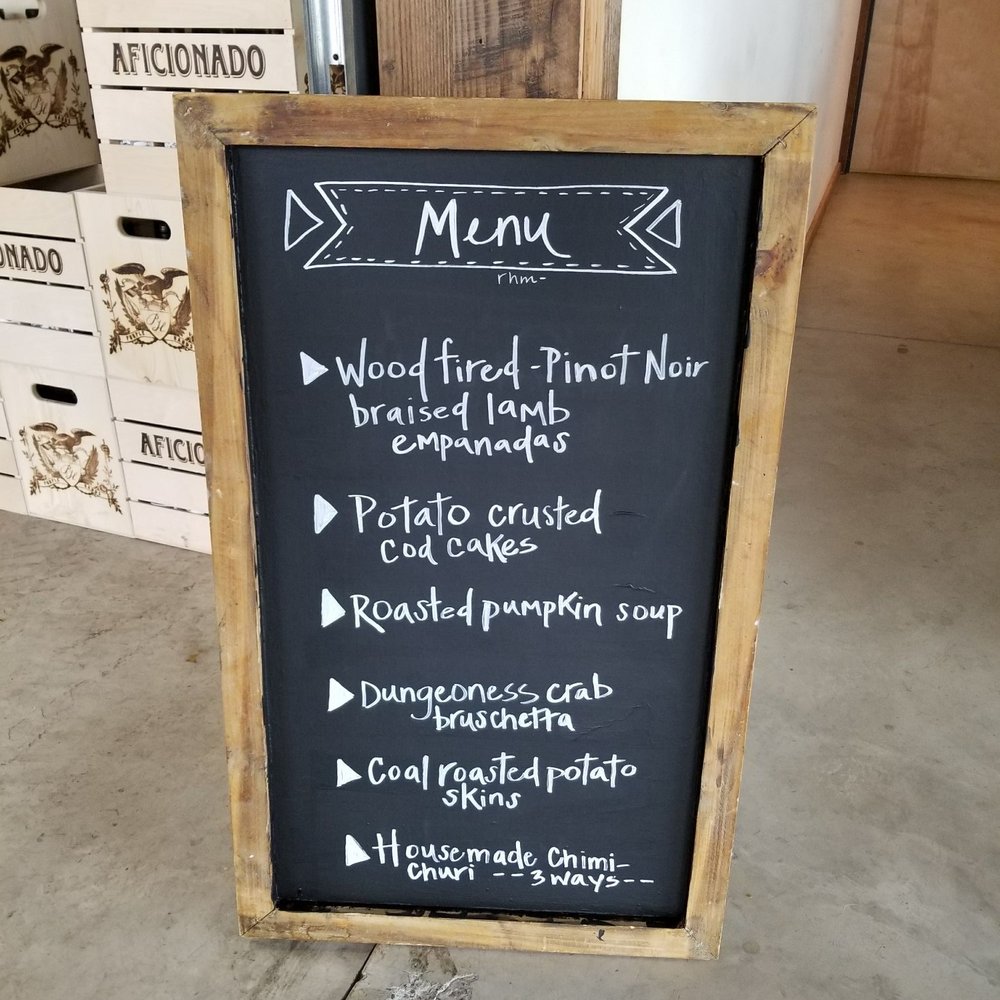 AFICIONADO
ONADO
PH
AFICIO
Menu
rhm-
Wood fired - Pinot Noir
braised lamb
empanadas
Potato crusted
cod cakes
Roasted pumpkin soup
Dungeoness crab
bruschetta
Coal roasted potato
skins
Housemade Chimi-
Churi -- 3 ways --